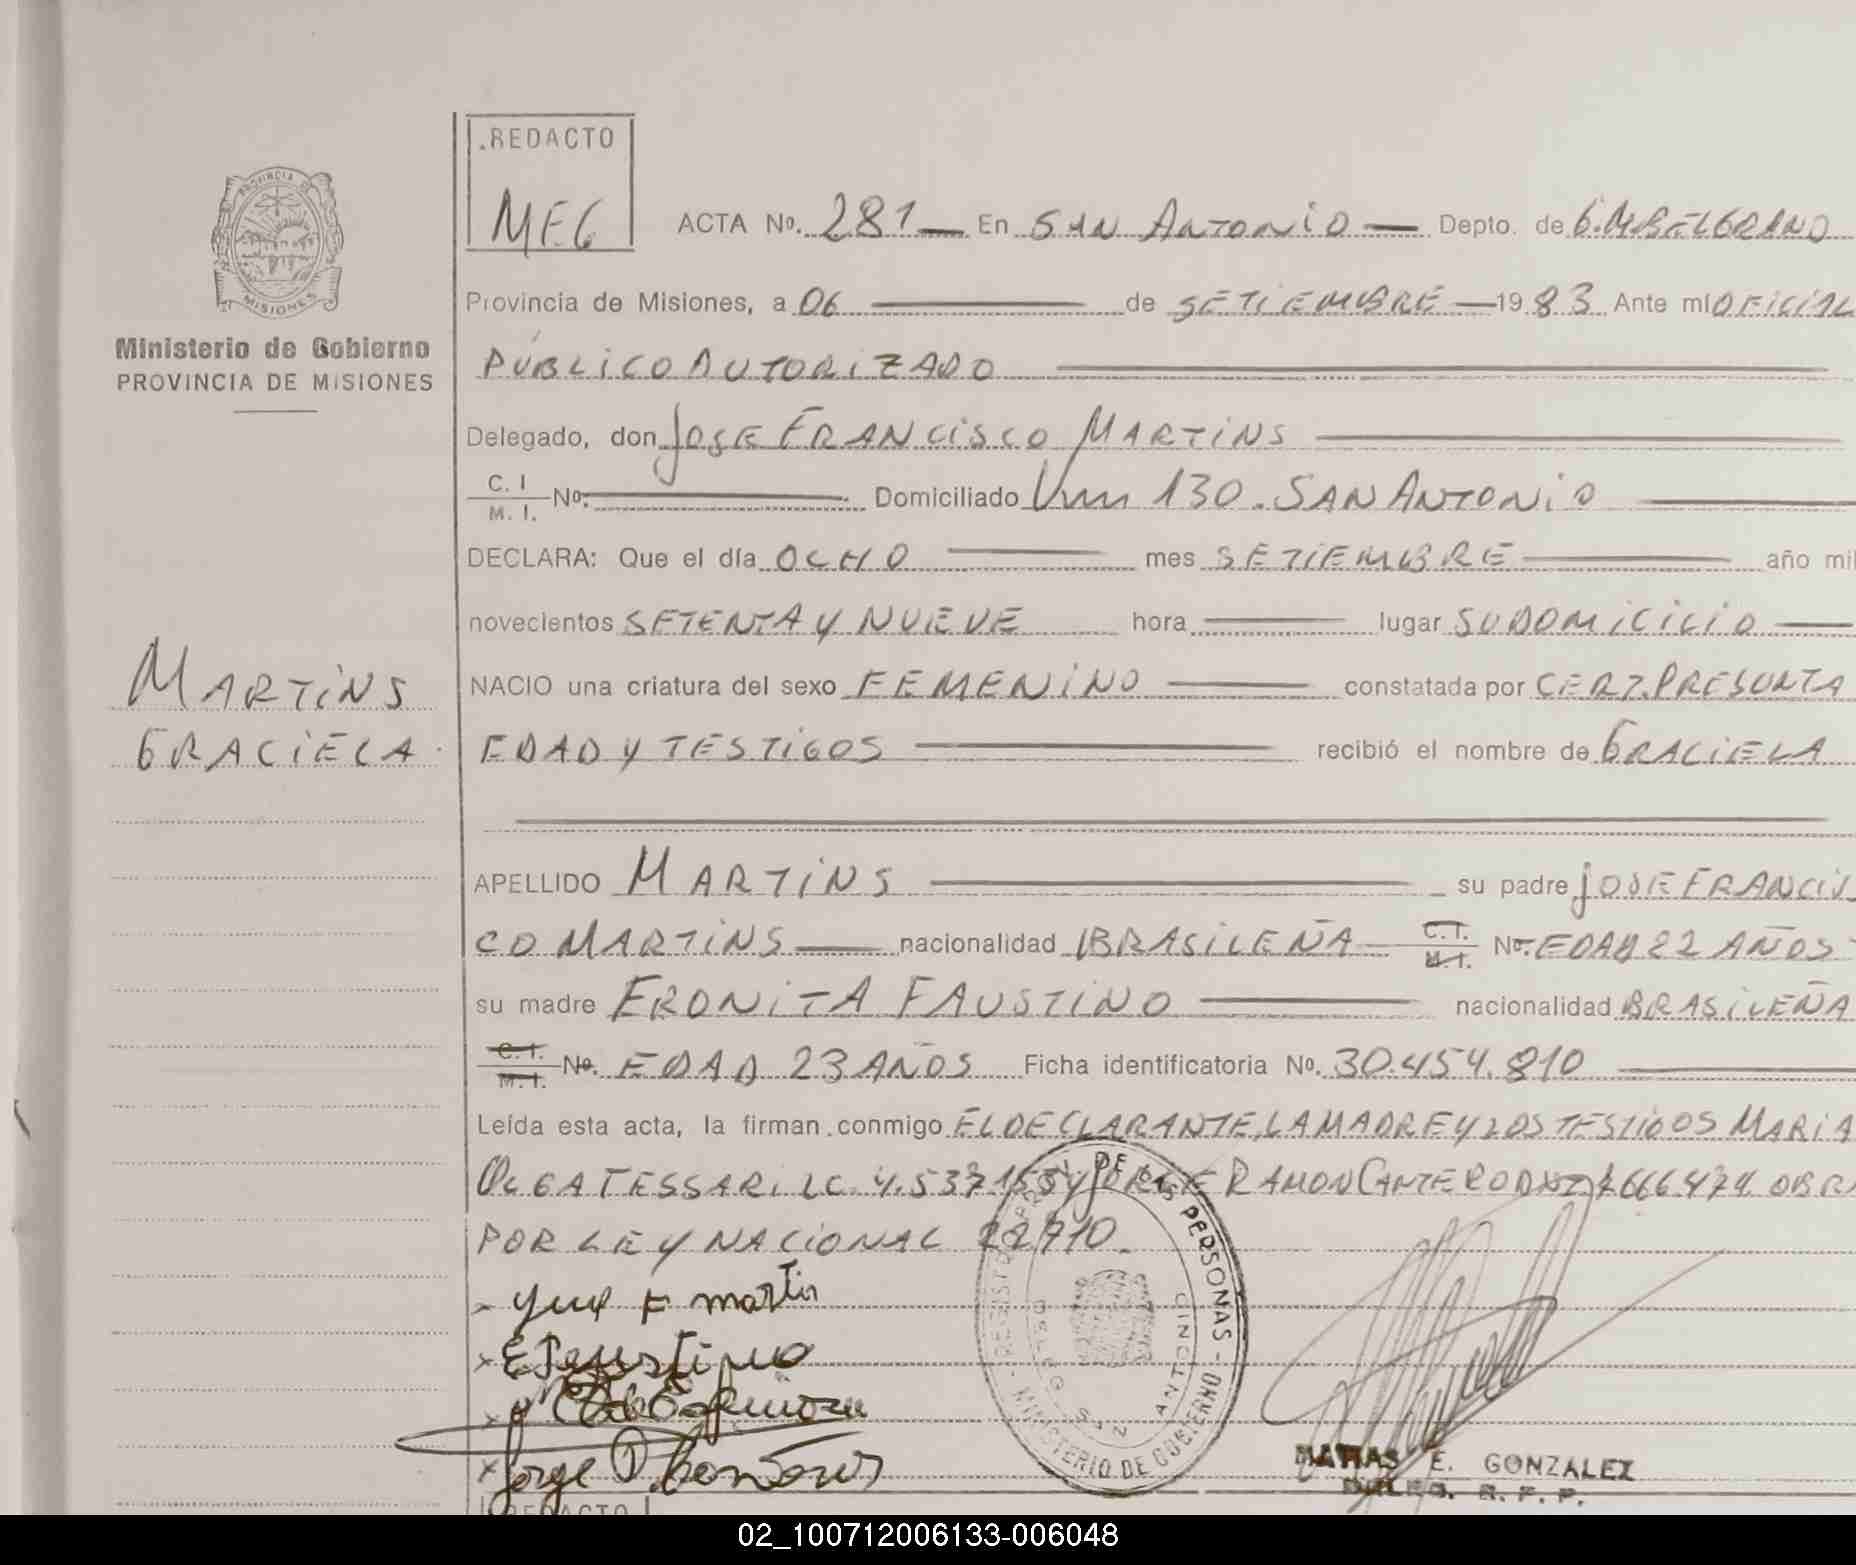 REDACTO
MEG
ACTA Nº. 281 — En SAN ANTONIO — Depto. de G.M.BELGRANO
PROVINCIA DE
MISIONES
Ministerio de Gobierno
PROVINCIA DE MISIONES
Provincia de Misiones, a 06 — de SETIEMBRE — 1983 Ante mí OFICIAL
PÚBLICO AUTORIZADO
Delegado, don JOSE FRANCISCO MARTINS
C. I
M. I. Nº: — Domiciliado Km 130. SAN ANTONIO
DECLARA: Que el día OCHO — mes SETIEMBRE — año mil
novecientos SETENTA Y NUEVE hora — lugar SU DOMICICIO —
NACIO una criatura del sexo FEMENINO — constatada por CERT. PRESUNTA
MARTINS
GRACIELA
EDAD Y TESTIGOS — recibió el nombre de GRACIELA
APELLIDO MARTINS — su padre JOSE FRANCIS
CO MARTINS — nacionalidad BRASILEÑA — C.I.
M.I. Nº. EDAD 22 AÑOS
su madre ERONITA FAUSTINO — nacionalidad BRASILEÑA
C.I.
M.I. Nº. EDAD 23 AÑOS Ficha identificatoria Nº. 30.454.810
Leída esta acta, la firman conmigo EL DECLARANTE, LA MADRE Y LOS TESTIGOS MARIA
OLGA TESSARI LC. 4.537.155 Y JORGE RAMON CANTERO DNI 7.666.474. OBR
POR LEY NACIONAL 22710.
REGISTRO PROV. DE LAS PERSONAS - MINISTERIO DE GOBIERNO
DELEG. SAN ANTONIO
MATIAS E. GONZALEZ
DELEG. R. P. P.
REDACTO
02_100712006133-006048